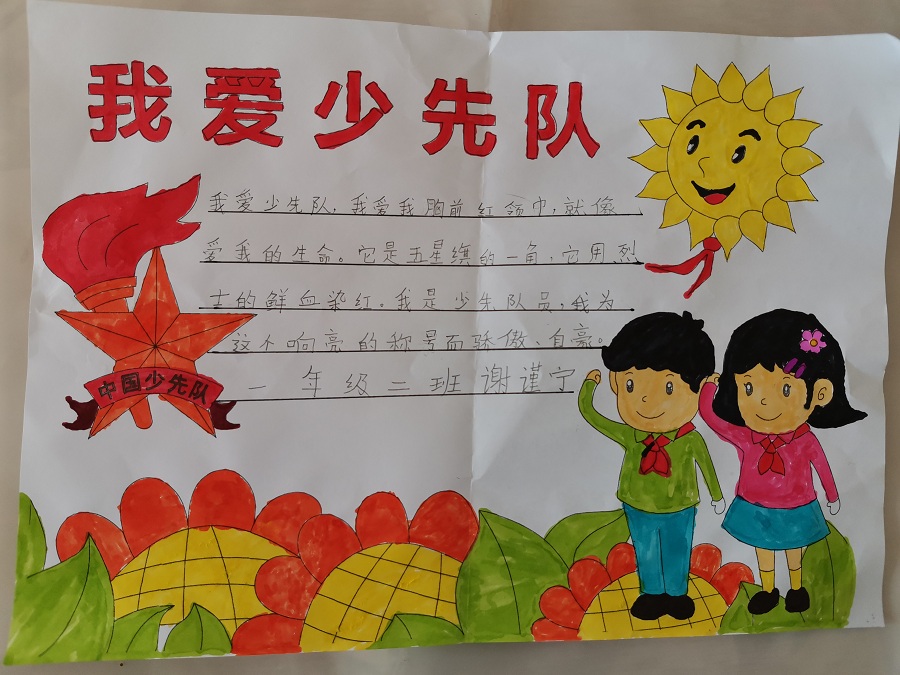 我爱少先队
我爱少先队，我爱我胸前红领巾，就像
爱我的生命。它是五星旗的一角，它用烈
士的鲜血染红。我是少先队员，我为
这个响亮的称号而骄傲、自豪。
一年级二班谢谨宁
中国少先队